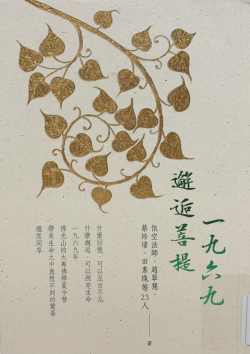 一九六九
邂逅菩提
依空法師、趙翠慧、
田素珠等23人
著
什麼回憶，可以亙古不忘
什麼邂逅，可以照亮生命
一九六九年
佛光山的大專佛學夏令營
帶來生命之中意想不到的驚喜
邀您同享